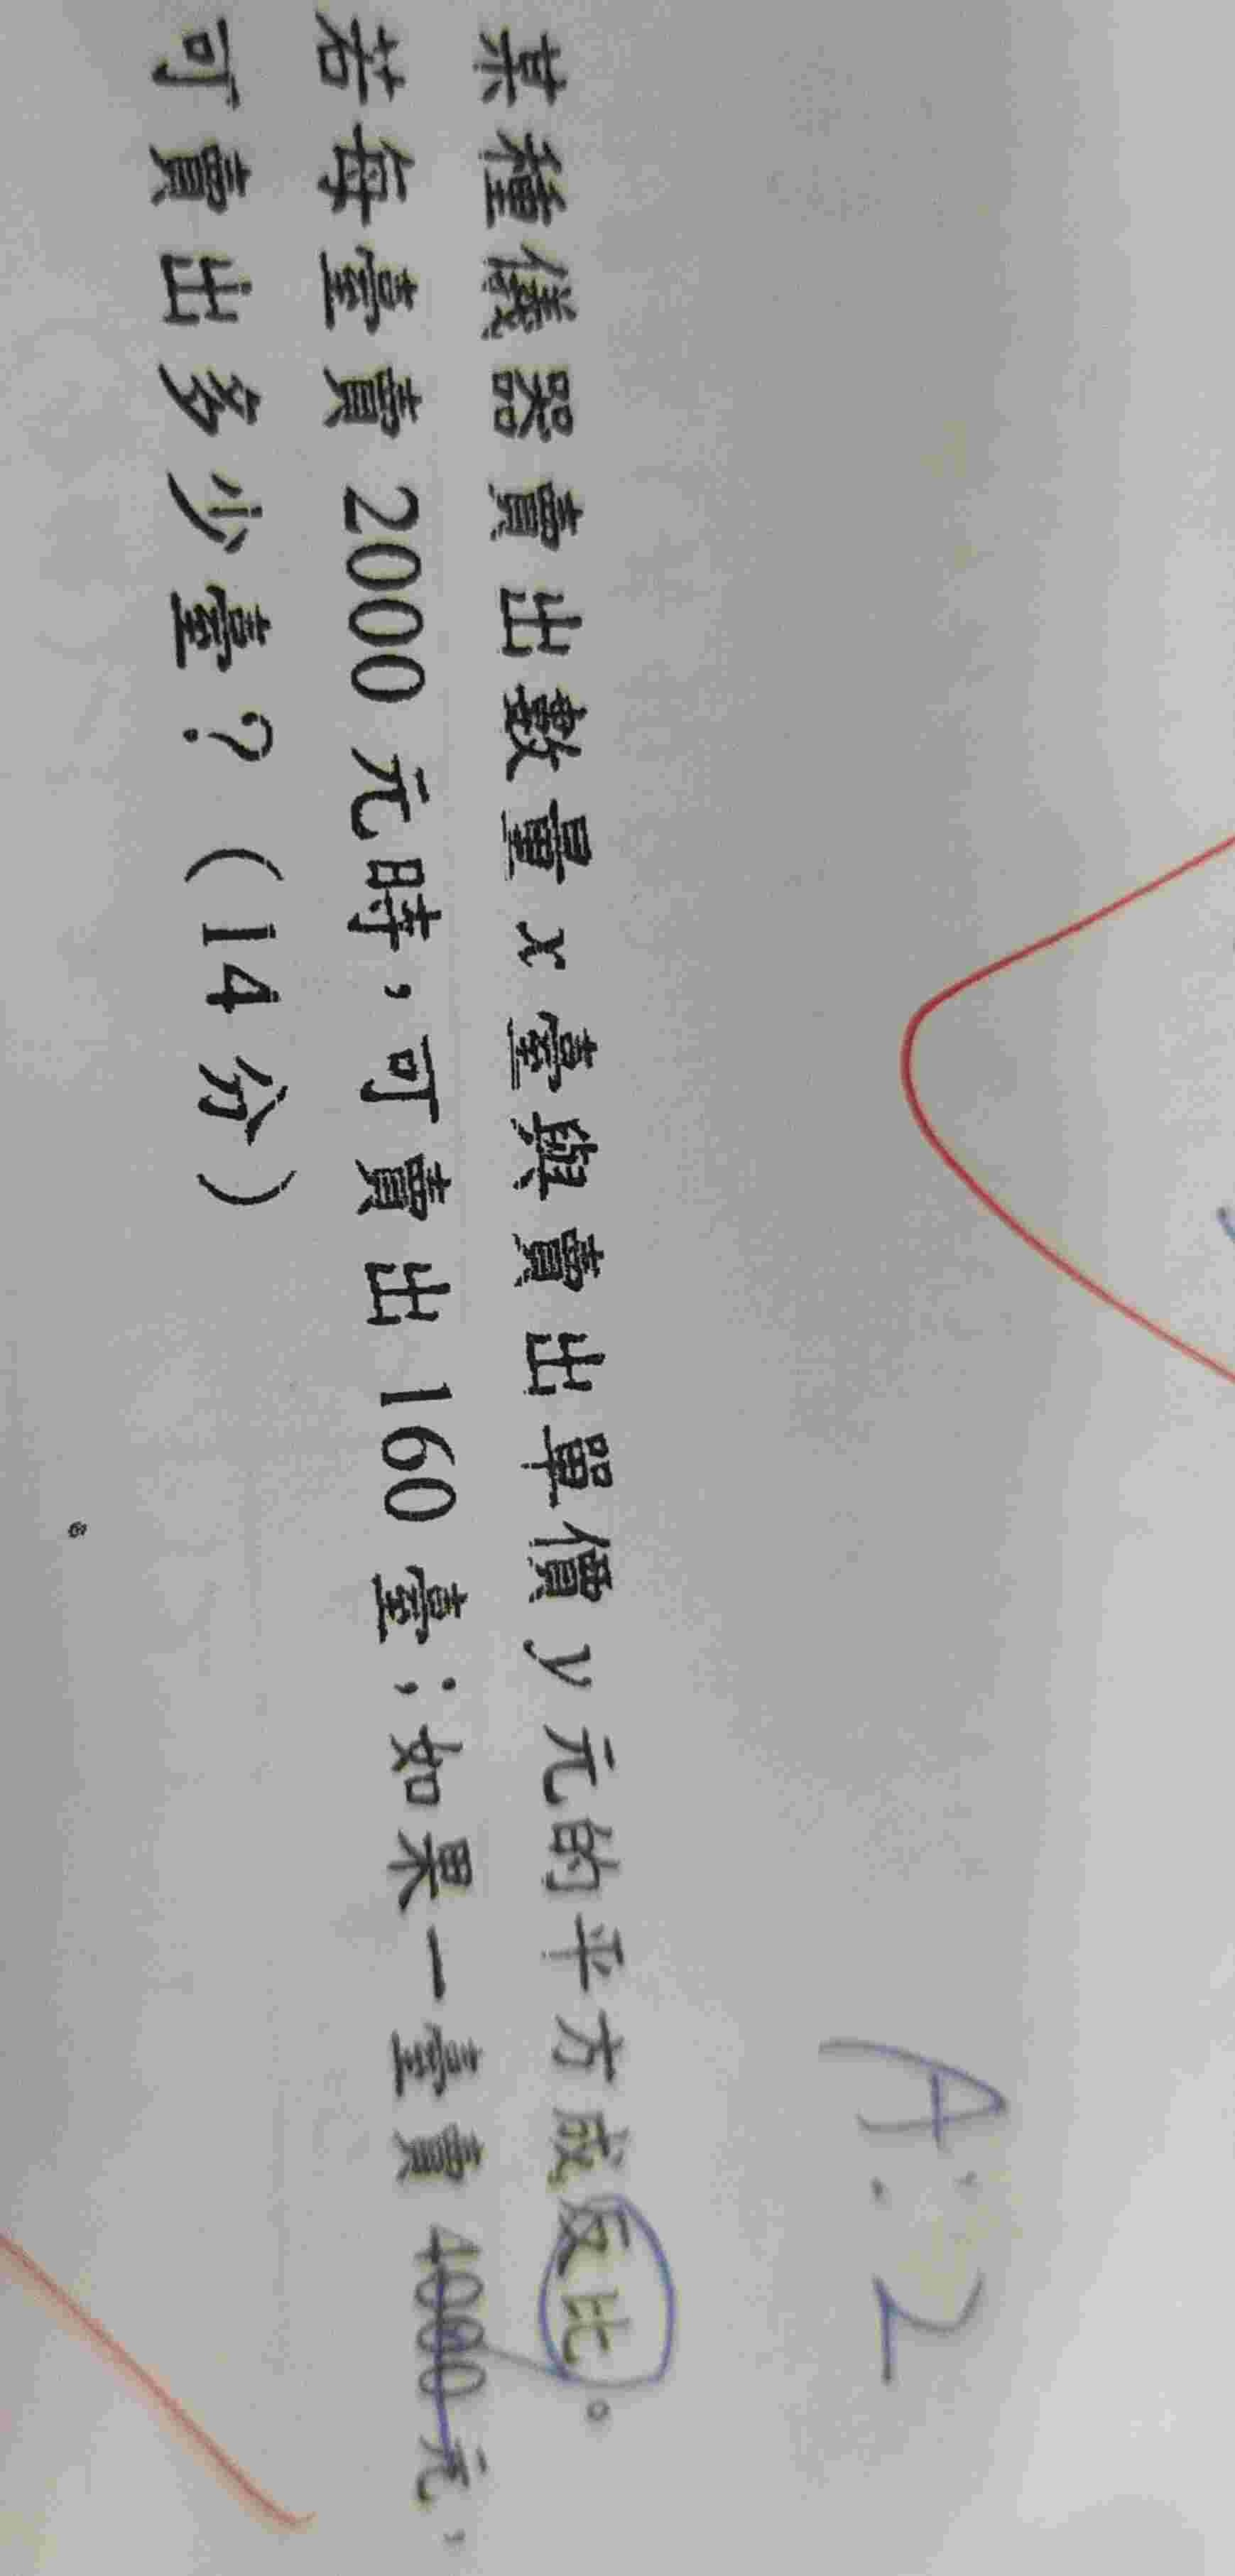 某種儀器賣出數量x臺與賣出單價y元的平方成反比。
若每臺賣2000元時，可賣出160臺；如果一臺賣4000元，
可賣出多少臺？（14分）
A:2